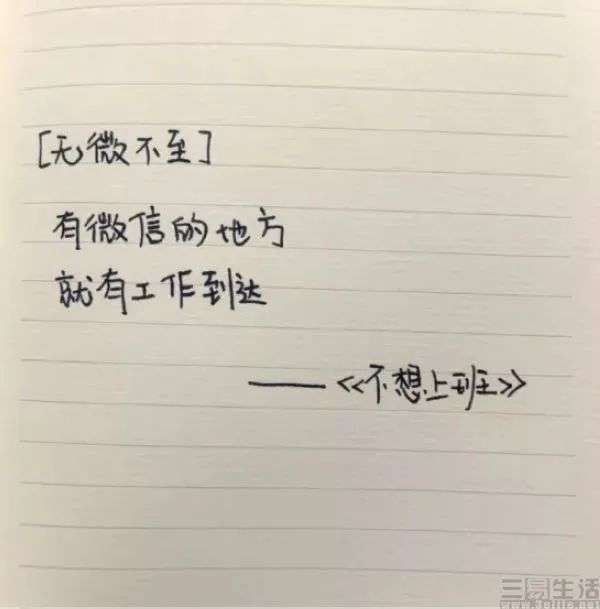 [无微不至]
有微信的地方
就有工作到达
——<<不想上班>>
三易生活